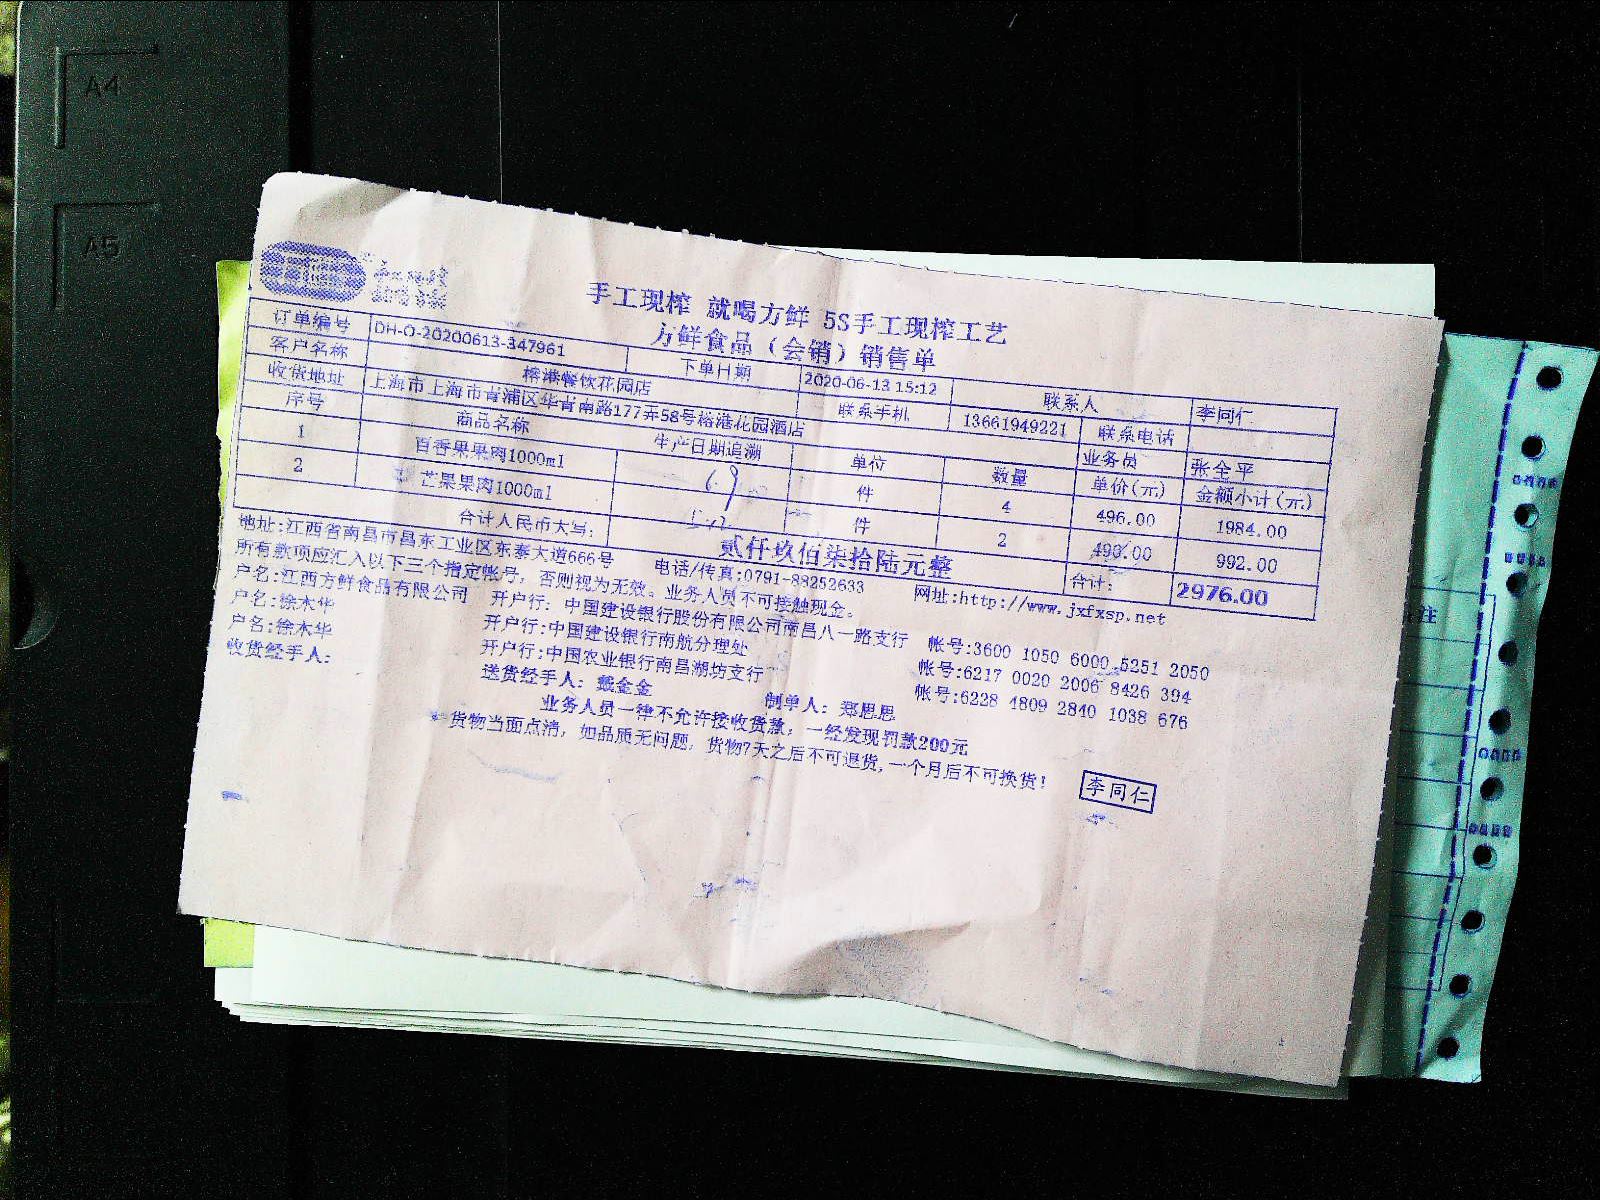 A4
A5
手工现榨 就喝方鲜 5S手工现榨工艺
方鲜食品（会销）销售单
订单编号 DH-O-20200613-347961 下单日期 2020-06-13 15:12 联系人 李同仁
客户名称 榕港餐饮花园店 联系手机 13661949221 联系电话
收货地址 上海市上海市青浦区华青南路177弄58号榕港花园酒店 业务员 张全平
序号 商品名称 生产日期追溯 单位 数量 单价(元) 金额小计(元)
1 百香果果肉1000ml 件 4 496.00 1984.00
2 芒果果肉1000ml 件 2 992.00
合计人民币大写: 贰仟玖佰柒拾陆元整 合计: 2976.00
地址:江西省南昌市昌东工业区东泰大道666号 电话/传真:0791-88252633 网址:http://www.jxfxsp.net
所有款项应汇入以下三个指定帐号，否则视为无效。业务人员不可接触现金。
户名:江西方鲜食品有限公司 开户行: 中国建设银行股份有限公司南昌八一路支行 帐号:3600 1050 6000 5251 2050
户名:徐木华 开户行:中国建设银行南航分理处 帐号:6217 0020 2006 8426 394
户名:徐木华 开户行:中国农业银行南昌湖坊支行 帐号:6228 4809 2840 1038 676
收货经手人: 送货经手人: 戴金金 制单人: 郑思思
业务人员一律不允许接收货款，一经发现罚款200元
货物当面点清，如品质无问题，货物7天之后不可退货,一个月后不可换货!
李同仁
注